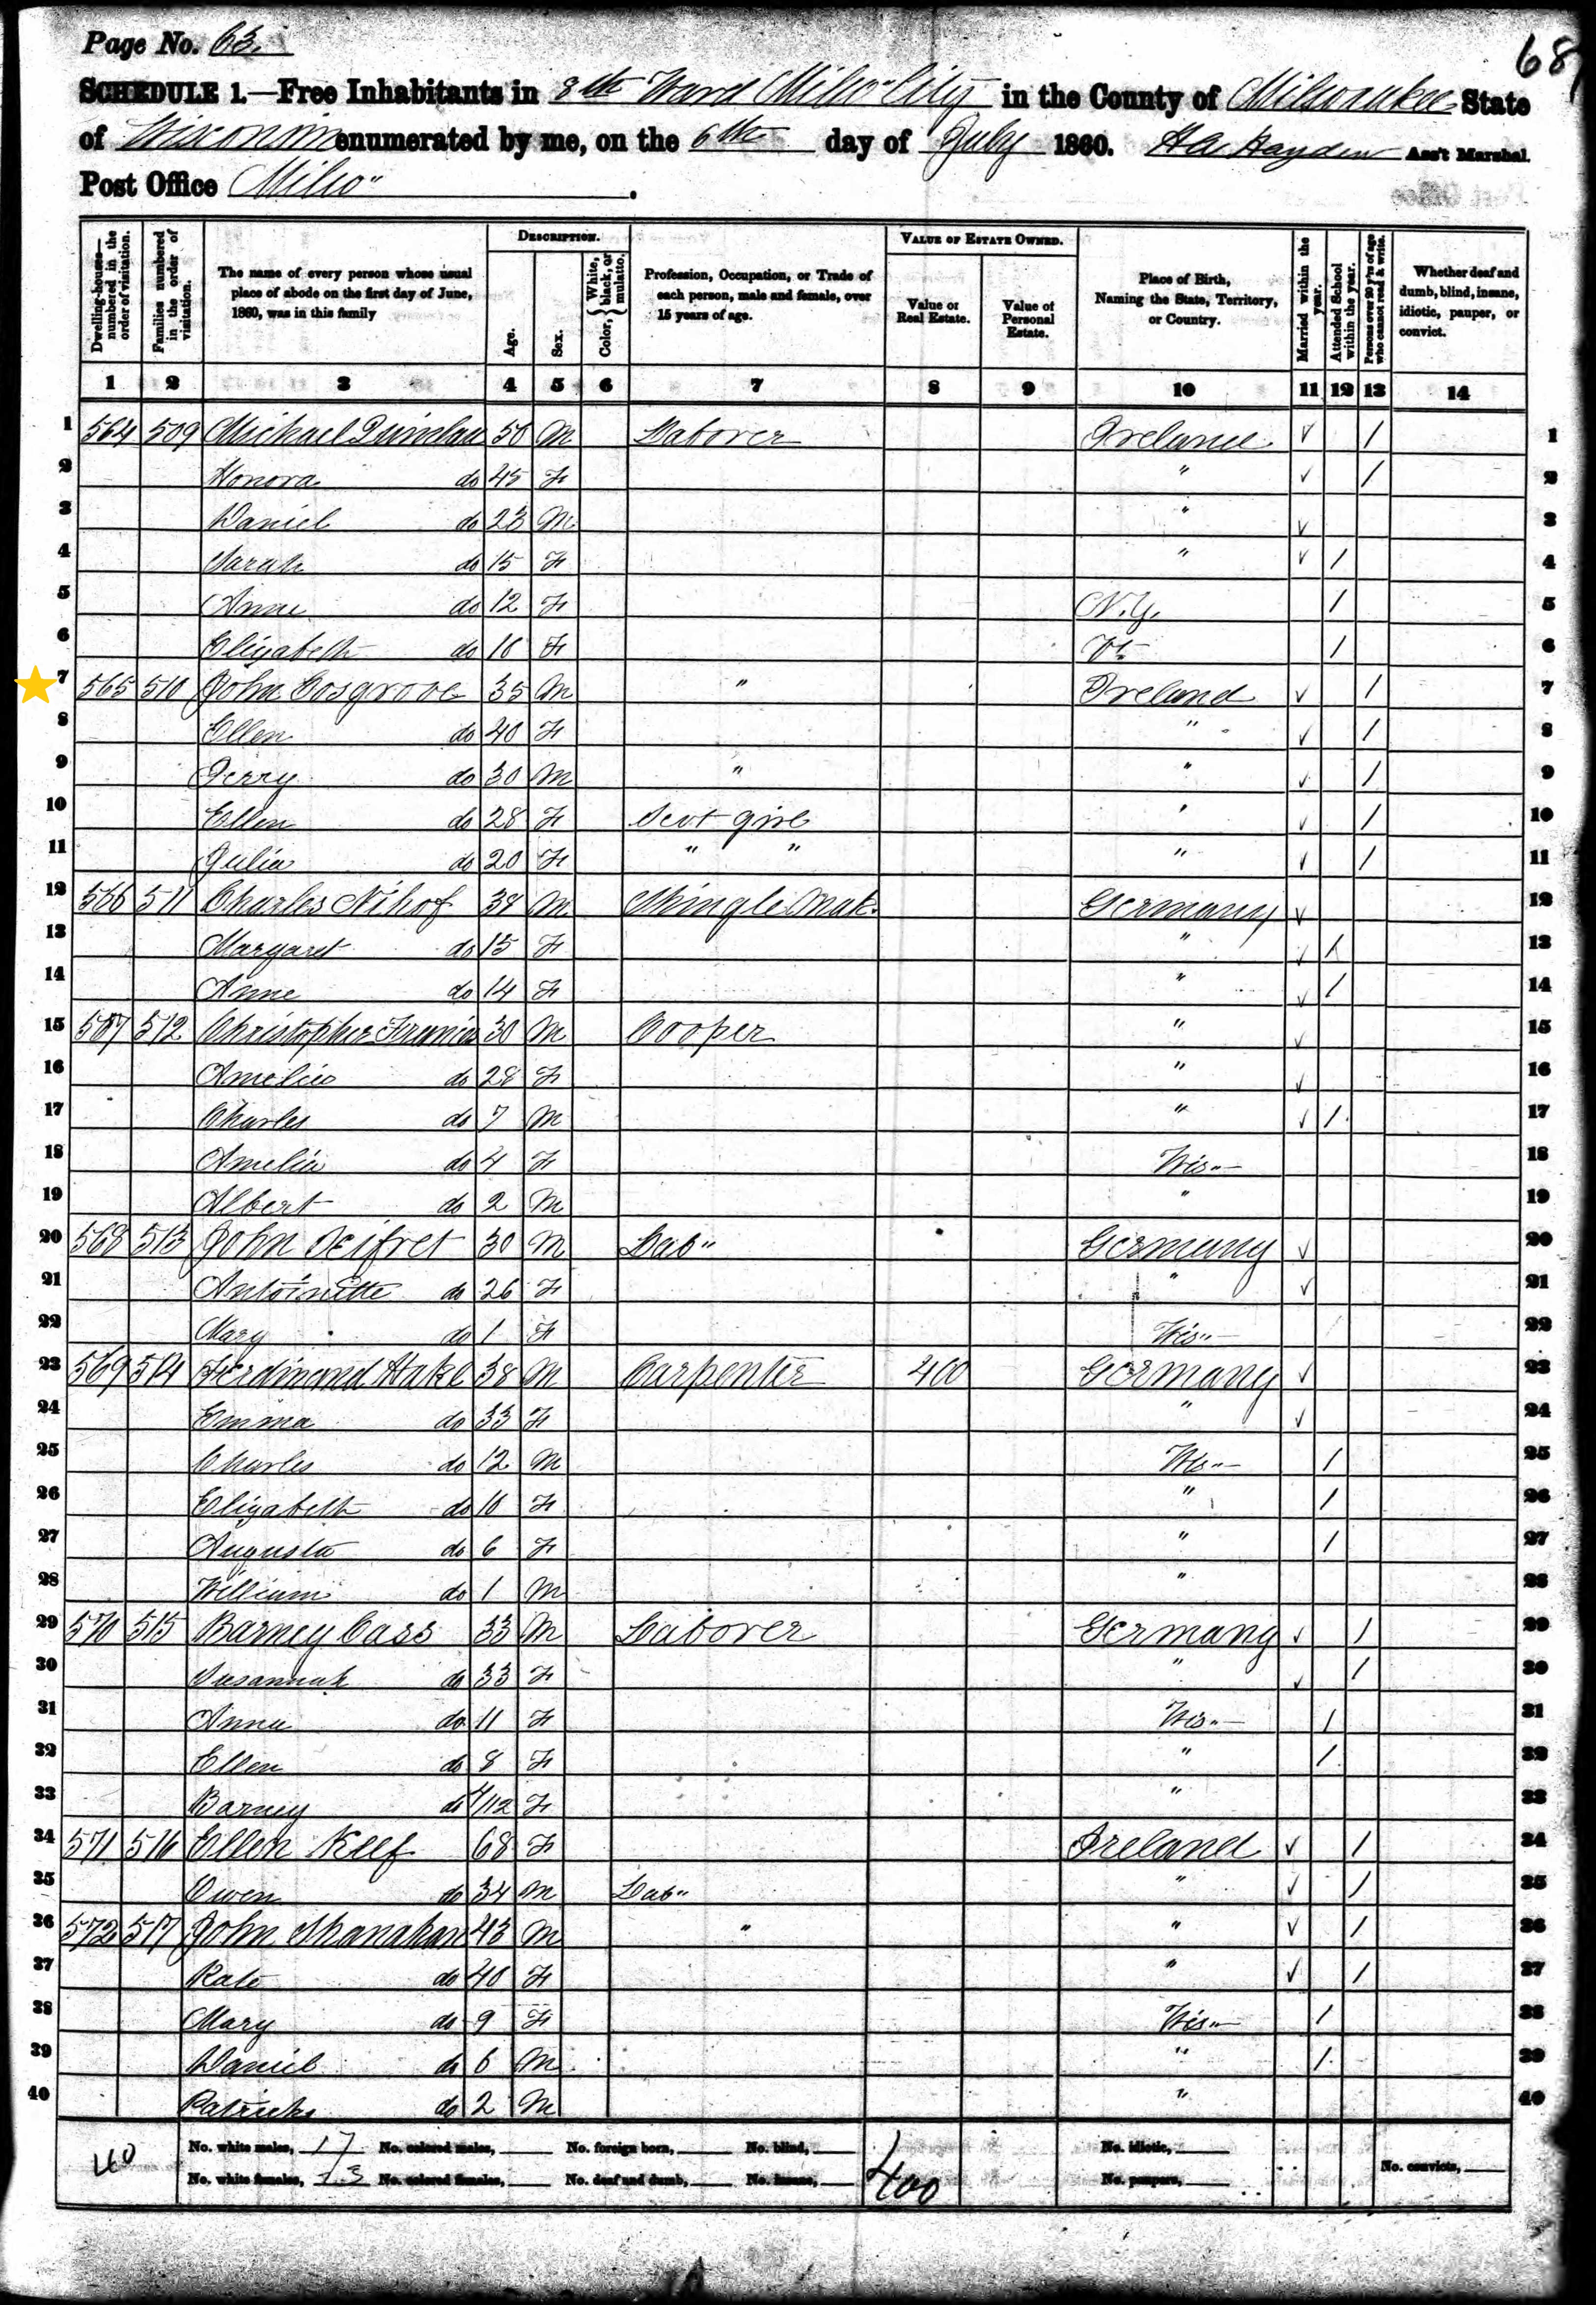 Page No. 63.
68
SCHEDULE 1.—Free Inhabitants in 3th Ward Milw" City in the County of Milwaukee State
of Wisconsin enumerated by me, on the 6th day of July 1860. Ass't Marshal.
Post Office Milw".
Dwelling-houses—numbered in the order of visitation.
Families numbered in the order of visitation.
The name of every person whose usual place of abode on the first day of June, 1860, was in this family
DESCRIPTION.
Age.
Sex.
Color, {White, black, or mulatto.
Profession, Occupation, or Trade of each person, male and female, over 15 years of age.
VALUE OF ESTATE OWNED.
Value of Real Estate.
Value of Personal Estate.
Place of Birth, Naming the State, Territory, or Country.
Married within the year.
Attended School within the year.
Persons over 20 y'rs of age who cannot read & write.
Whether deaf and dumb, blind, insane, idiotic, pauper, or convict.
1 2 3 4 5 6 7 8 9 10 11 12 13 14
1 564 509 Michael Quinlan 50 M Laborer Ireland ✓ / 1
2 Honora do 45 F " ✓ / 2
3 Daniel do 23 M " ✓ 3
4 Sarah do 15 F " ✓ / 4
5 Anne do 12 F N.Y. / 5
6 Elizabeth do 10 F Vt / 6
7 565 510 John Cosgrove 35 M " Ireland ✓ / 7
8 Ellen do 40 F " ✓ / 8
9 Jerry do 30 M " " ✓ / 9
10 Ellen do 28 F Sevt girl " ✓ / 10
11 Julia do 20 F " " " ✓ / 11
12 566 511 Charles Nihof 38 M Shingle Mak. Germany ✓ 12
13 Margaret do 15 F " ✓ / 13
14 Anne do 14 F " ✓ / 14
15 567 512 Christopher 30 M Cooper " ✓ 15
16 Amelia do 28 F " ✓ 16
17 Charles do 7 M " ✓ / 17
18 Amelia do 4 F Wis" 18
19 Albert do 2 M " 19
20 568 513 John Seifret 30 M Lab" Germany ✓ 20
21 Antoinette do 26 F " ✓ 21
22 Mary do 1 F Wis" 22
23 569 514 Ferdinand Hake 38 M Carpenter 400 Germany ✓ 23
24 Emma do 33 F " ✓ 24
25 Charles do 12 M Wis" / 25
26 Elizabeth do 10 F " / 26
27 Augusta do 6 F " / 27
28 William do 1 M " 28
29 570 515 Barney Cass 33 M Laborer Germany ✓ / 29
30 Susannah do 33 F " ✓ / 30
31 Anna do 11 F Wis" / 31
32 Ellen do 8 F " / 32
33 Barney do 4/12 F " 33
34 571 516 Ellen Keef 68 F Ireland ✓ / 34
35 Owen do 34 M Lab" " ✓ / 35
36 572 517 John Shanahan 43 M " " ✓ / 36
37 Kate do 40 F " ✓ / 37
38 Mary do 9 F Wis" / 38
39 Daniel do 6 M " / 39
40 Patrick do 2 M " 40
40 No. white males, 17 No. colored males, No. foreign born, No. blind, No. idiotic,
No. white females, 23 No. colored females, No. deaf and dumb, No. insane, 400 No. paupers, No. convicts,